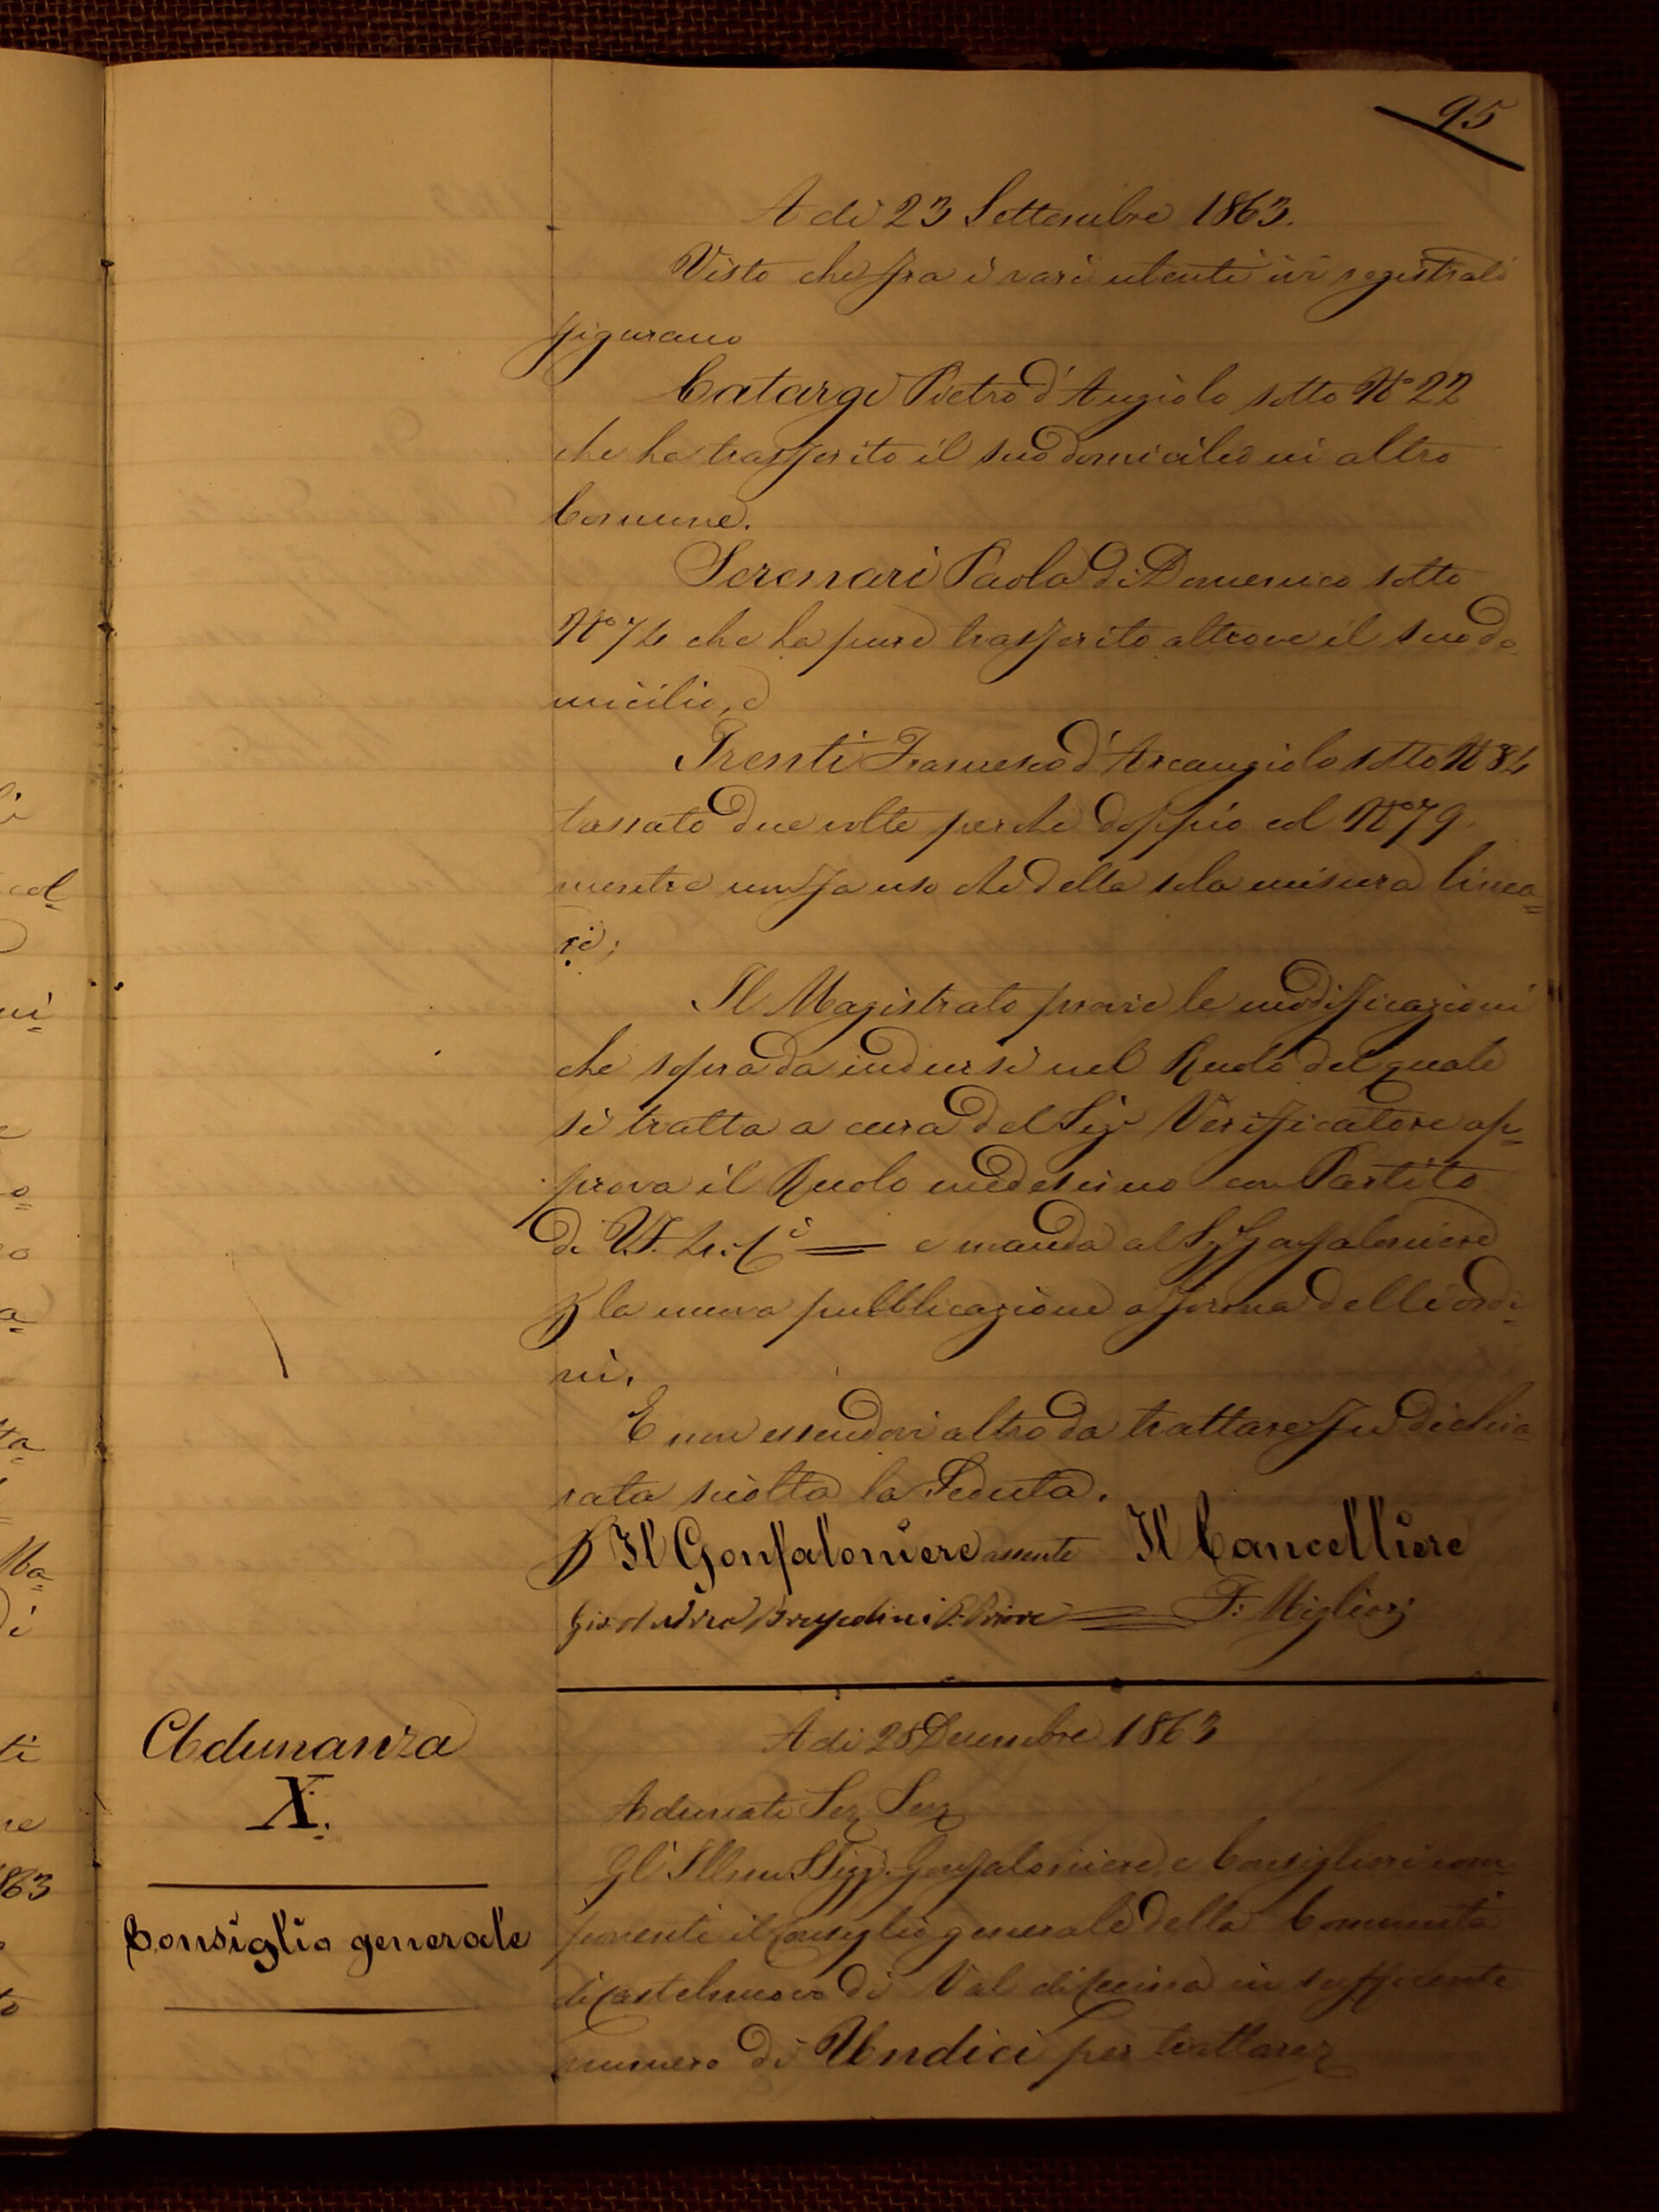 95
A dì 23 Settembre 1863.
Visto che fra i vari utenti ivi registrati
figurano
Catargi Pietro d'Angiolo sotto N° 22
che ha trasferito il suo domicilio in altro
Comune.
Serenari Paolo di Domenico sotto
N° 74 che ha pure trasferito altrove il suo do-
micilio, e
Trenti Francesco d'Arcangiolo sotto N 84
tassato due volte perche doppio col N° 79
mentre non fa uso che della sola misura linea=
re;
Il Magistrato previe le modificazioni
che sopra da indursi nel Ruolo del quale
si tratta a cura del Sigr Verificatore ap=
prova il Ruolo medesimo con Partito
di V.F. e manda al Sigr Gonfaloniere
la nuova pubblicazione a forma delli ordi=
ni.
E non essendovi altro da trattare fu dichia=
rata sciolta la Seduta.
P Il Gonfaloniere assente Il Cancelliere
P. Priore = F: Migliori
Adunanza
X.
Consiglio generale
A dì 28 Decembre 1863
Adunati Ser Ser
Gl' Illmi Sigg. Gonfaloniere e Consiglieri com=
ponenti il Consiglio generale della Comunità
di Castelnuovo di Val di Cecina in sufficente
numero di Undici per trattare